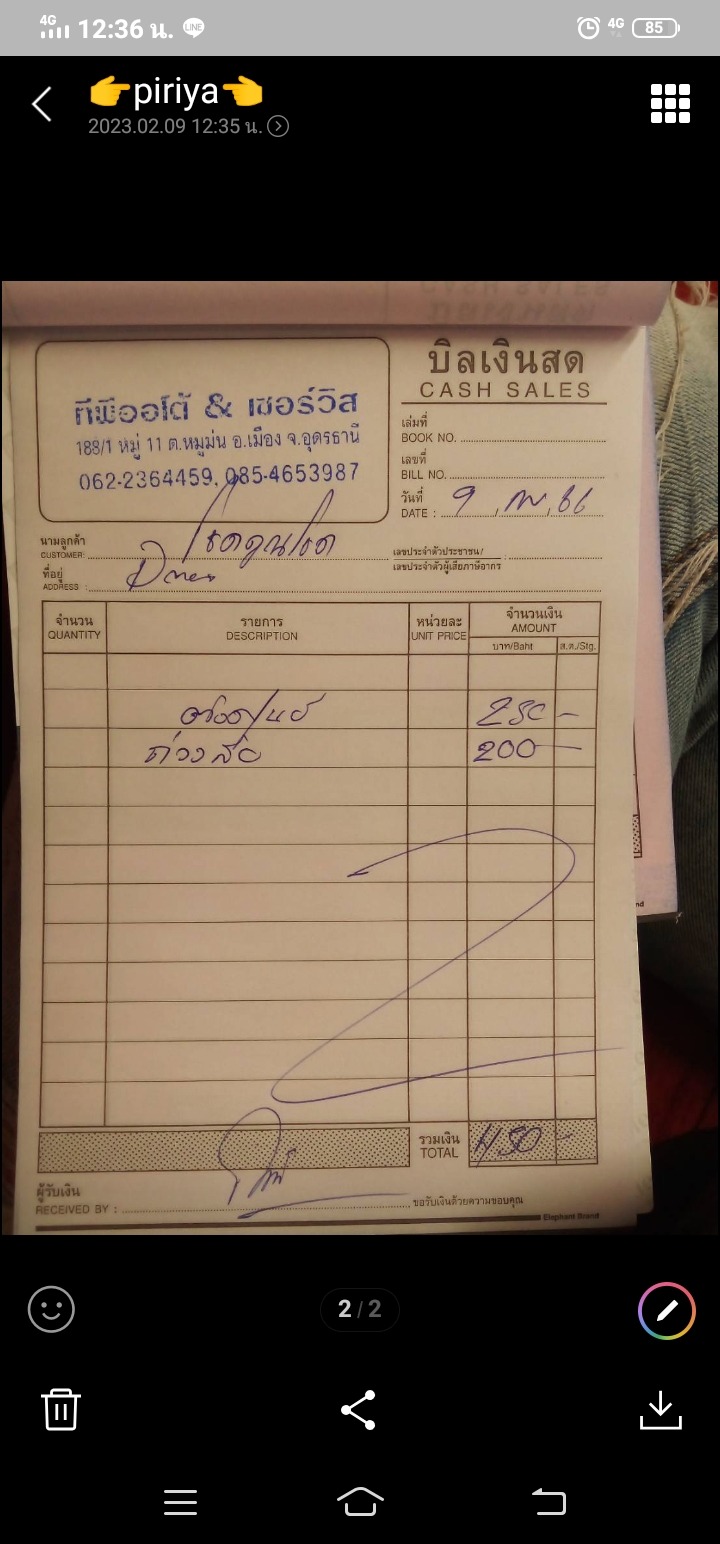 4G 12:36 น. LINE 4G 85
👉piriya👈
2023.02.09 12:35 น.
ทีพีออโต้ & เซอร์วิส
188/1 หมู่ 11 ต.หมูม่น อ.เมือง จ.อุดรธานี
062-2364459, 085-4653987
บิลเงินสด
CASH SALES
เล่มที่
BOOK NO.
เลขที่
BILL NO.
วันที่
DATE : 9 กพ 66
นามลูกค้า
CUSTOMER:
เลขประจำตัวประชาชน/ :
เลขประจำตัวผู้เสียภาษีอากร
ที่อยู่
ADDRESS :
จำนวน
QUANTITY
รายการ
DESCRIPTION
หน่วยละ
UNIT PRICE
จำนวนเงิน
AMOUNT
บาท/Baht
ส.ต./Stg.
250 -
ถ่วงล้อ 200 -
รวมเงิน
TOTAL
450 -
ผู้รับเงิน
RECEIVED BY :
ขอรับเงินด้วยความขอบคุณ
Elephant Brand
2 / 2